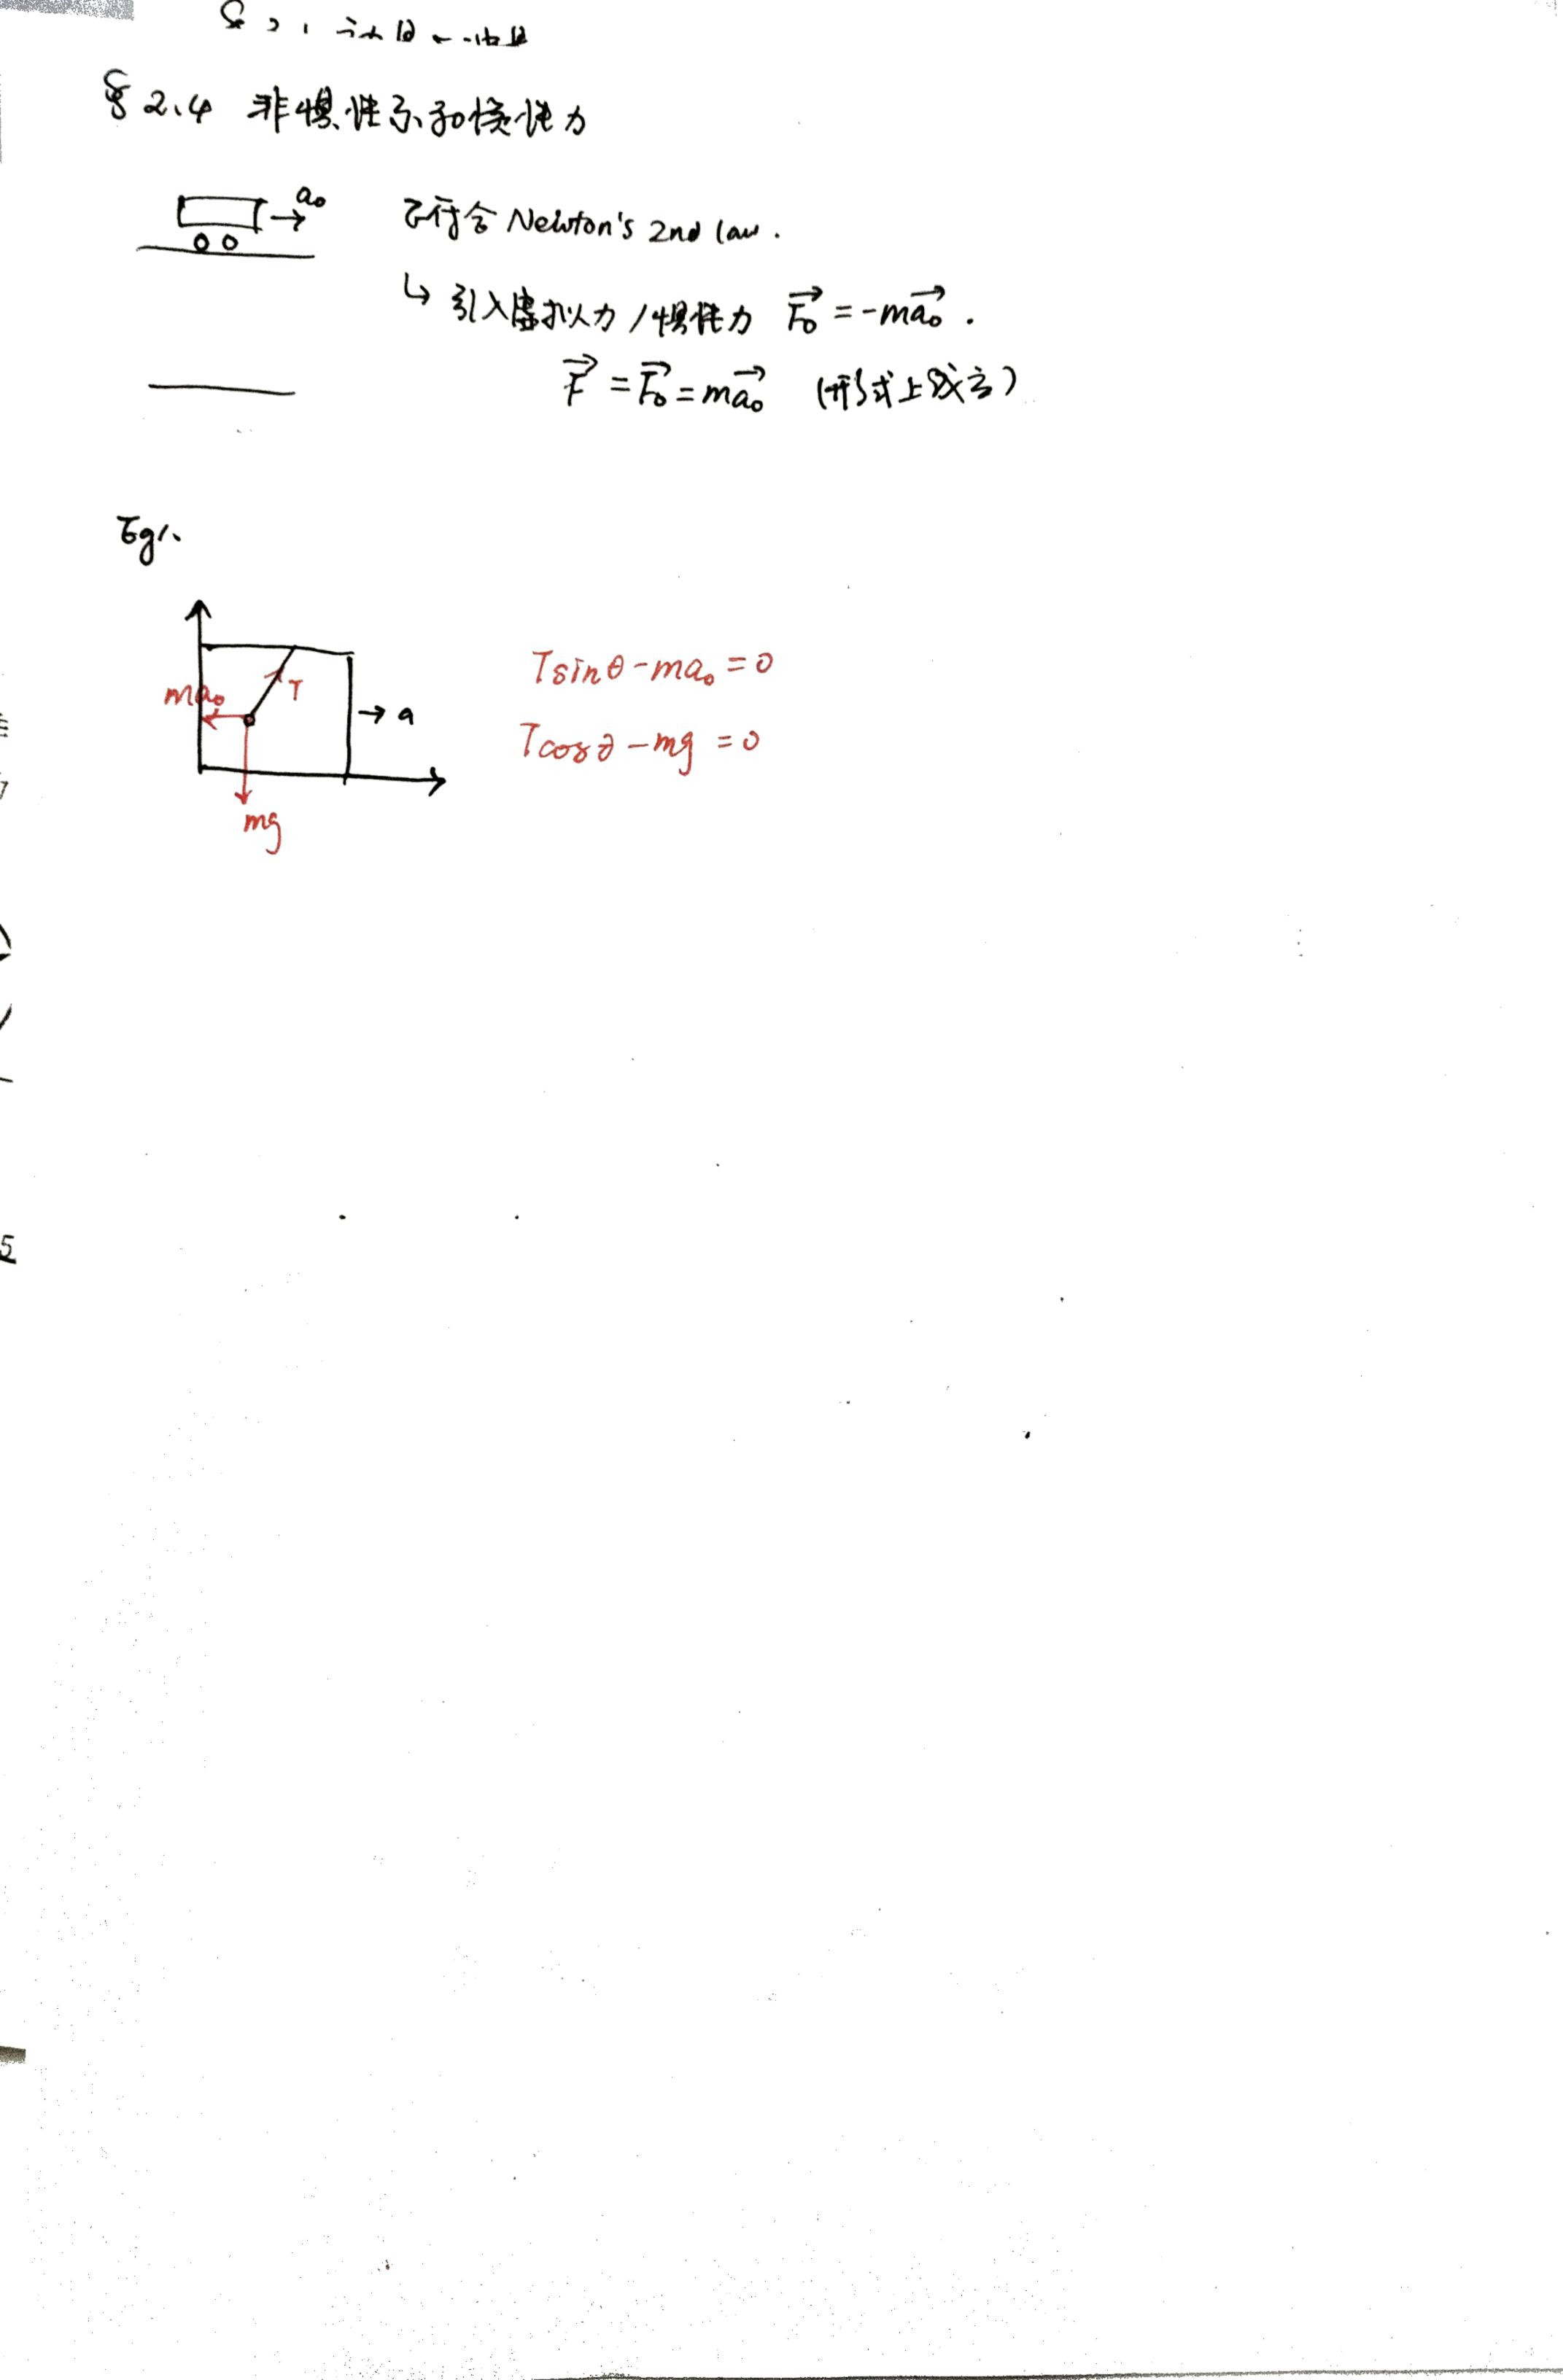 § 2.4 非惯性系和惯性力
a₀
不符合 Newton's 2nd law.
↳ 引入虚拟力/惯性力 F₀⃗ = -ma₀⃗.
F⃗ = F₀⃗ = ma₀⃗ (形式上成立)
Eg1、
ma₀
T
→ a
mg
Tsinθ - ma₀ = 0
Tcosθ - mg = 0
5